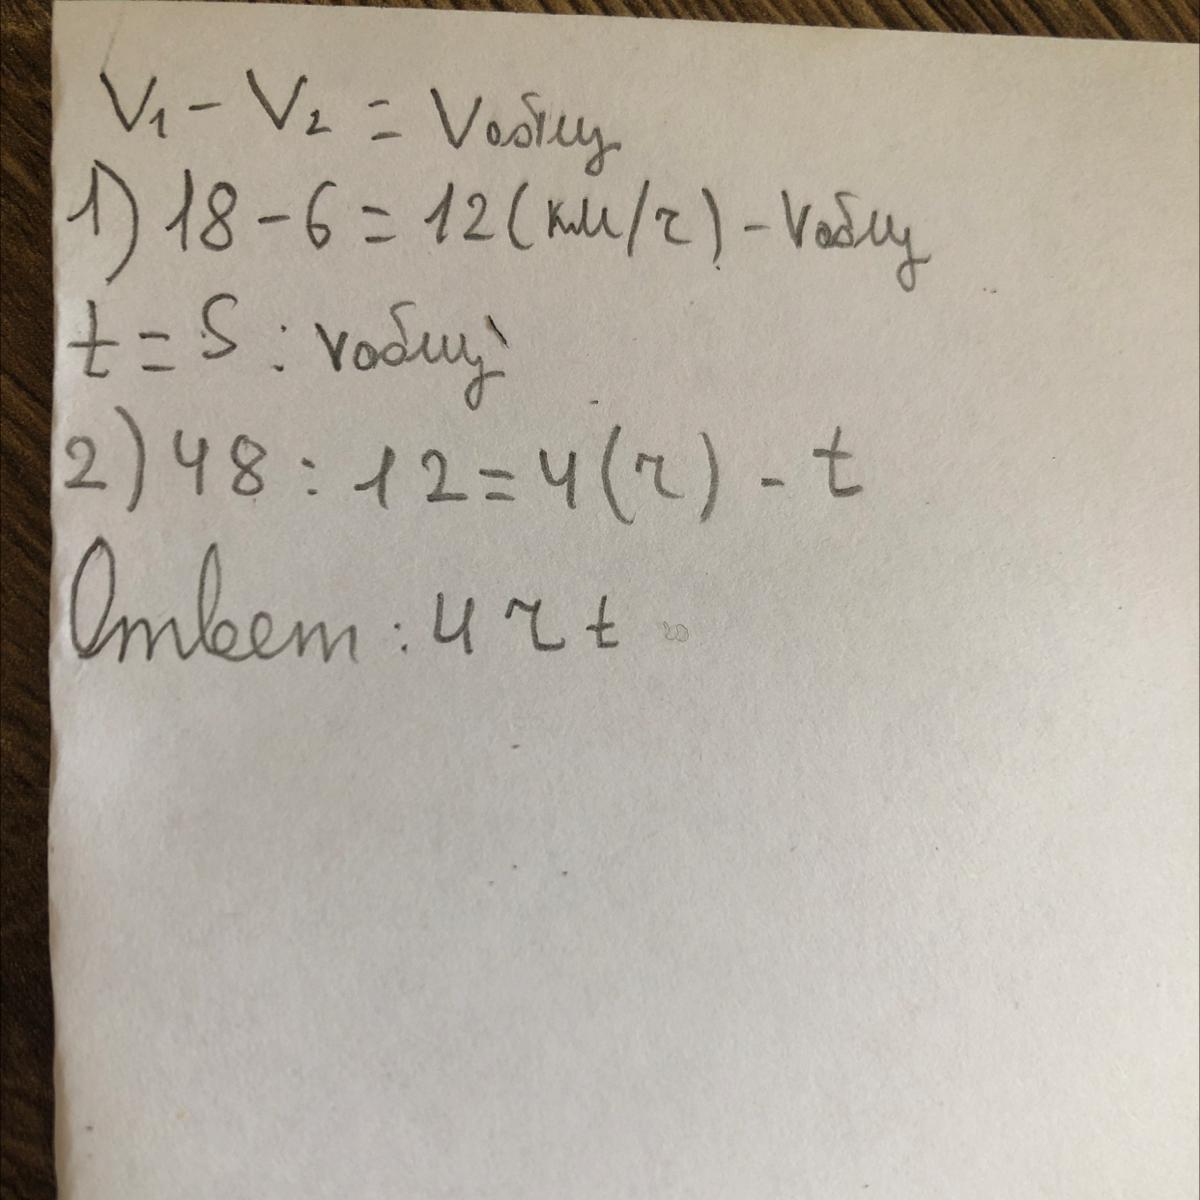 V₁ - V₂ = Vобщ
1) 18 - 6 = 12 (км/ч) - Vобщ
t = S : Vобщ
2) 48 : 12 = 4 (ч) - t
Ответ: 4 ч t